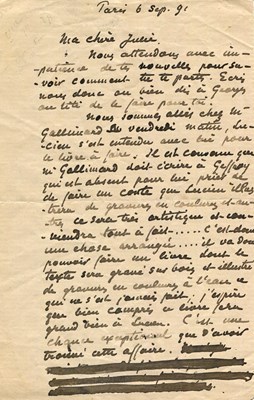 Paris 6 Sep. 91
Ma chère Julie.
Nous attendons avec im-
-patience de tes nouvelles pour sa-
-voir comment tu te porte. Ecris
nous donc ou bien dis à Georges
ou titi de le faire pour toi.
Nous sommes allés chez Mr
Gallimard le vendredi matin, Lu-
-cien s'est entendu avec lui pour
le livre à faire. Il est convenu que
Mr Gallimard doit écrire à Geffroy
qui est absent pour lui prier de
de faire un conte que Lucien illus-
trera de gravures en couleurs et au-
tres ce sera très artistique et con-
-viendra tout à fait..... C'est donc
une chose arrangée.... il va donc
pouvoir faire un livre dont le
texte sera gravé sur bois et illustré
de gravures en couleurs à l'eau ce
qui ne s'est jamais fait, j'espère
que bien compris ce livre fera
grand bien à Lucien. C'est une
chance exceptionnel que d'avoir
trouvé cette affaire.